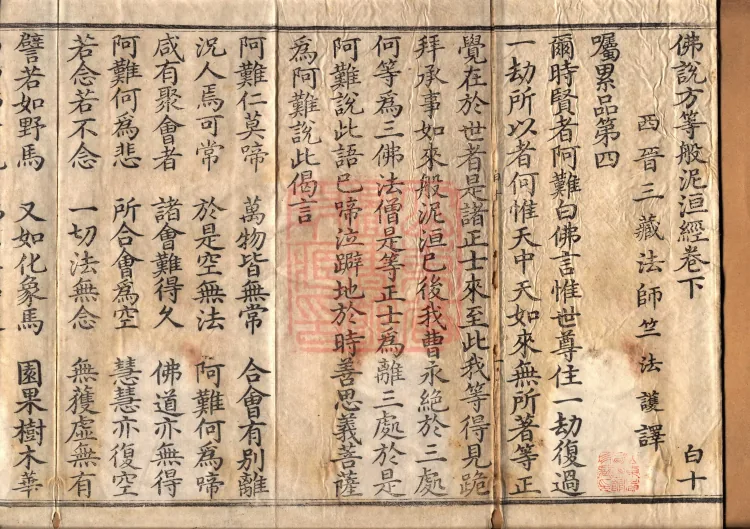 佛說方等般泥洹經卷下 白十
西晉三藏法師竺法護譯
囑累品第四
爾時賢者阿難白佛言惟世尊住一劫復過
一劫所以者何惟天中天如來無所著等正
覺在於世者是諸正士來至此我等得見跪
拜承事如來般泥洹已後我曹永絕於三處
何等為三佛法僧是等正士為離三處於是
阿難說此語已啼泣躃地於時善思義菩薩
為阿難說此偈言
阿難仁莫啼 萬物皆無常 合會有別離
況人焉可常 於是空無法 阿難何為啼
咸有聚會者 諸會難得久 佛道亦無得
阿難何為悲 所合會為空 慧慧亦復空
若念若不念 一切法無念 無獲虛無有
譬若如野馬 又如化象馬 園果樹木華